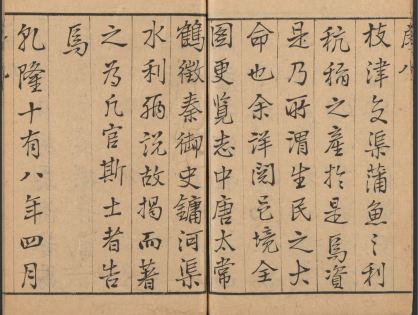 枝津交渠蒲魚之利
秔稻之產於是焉資
是乃所謂生民之大
命也余詳閱邑境全
圖更覽志中唐太常
鶴徵秦御史鏞河渠
水利
說故揭而著
之為凡官斯土者告
焉
乾隆十有八年四月